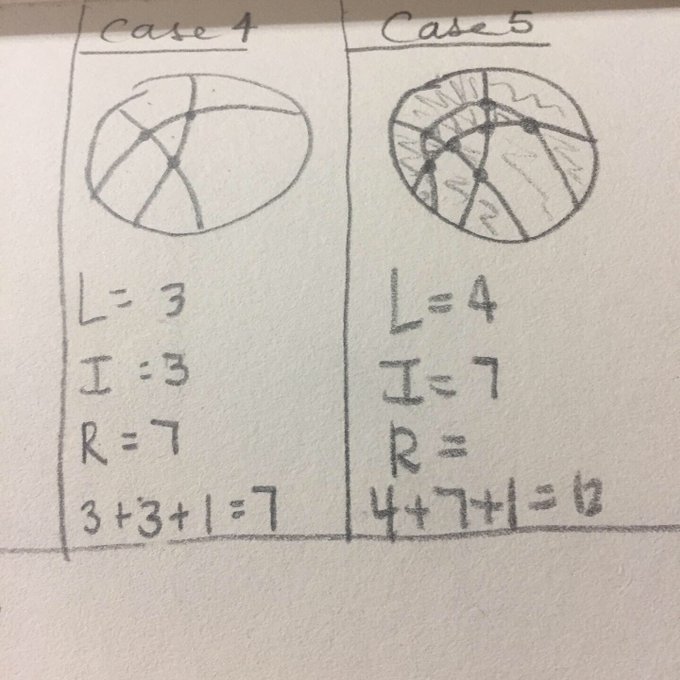 Case 4
L = 3
I = 3
R = 7
3+3+1=7
Case 5
L = 4
I = 7
R =
4+7+1=12